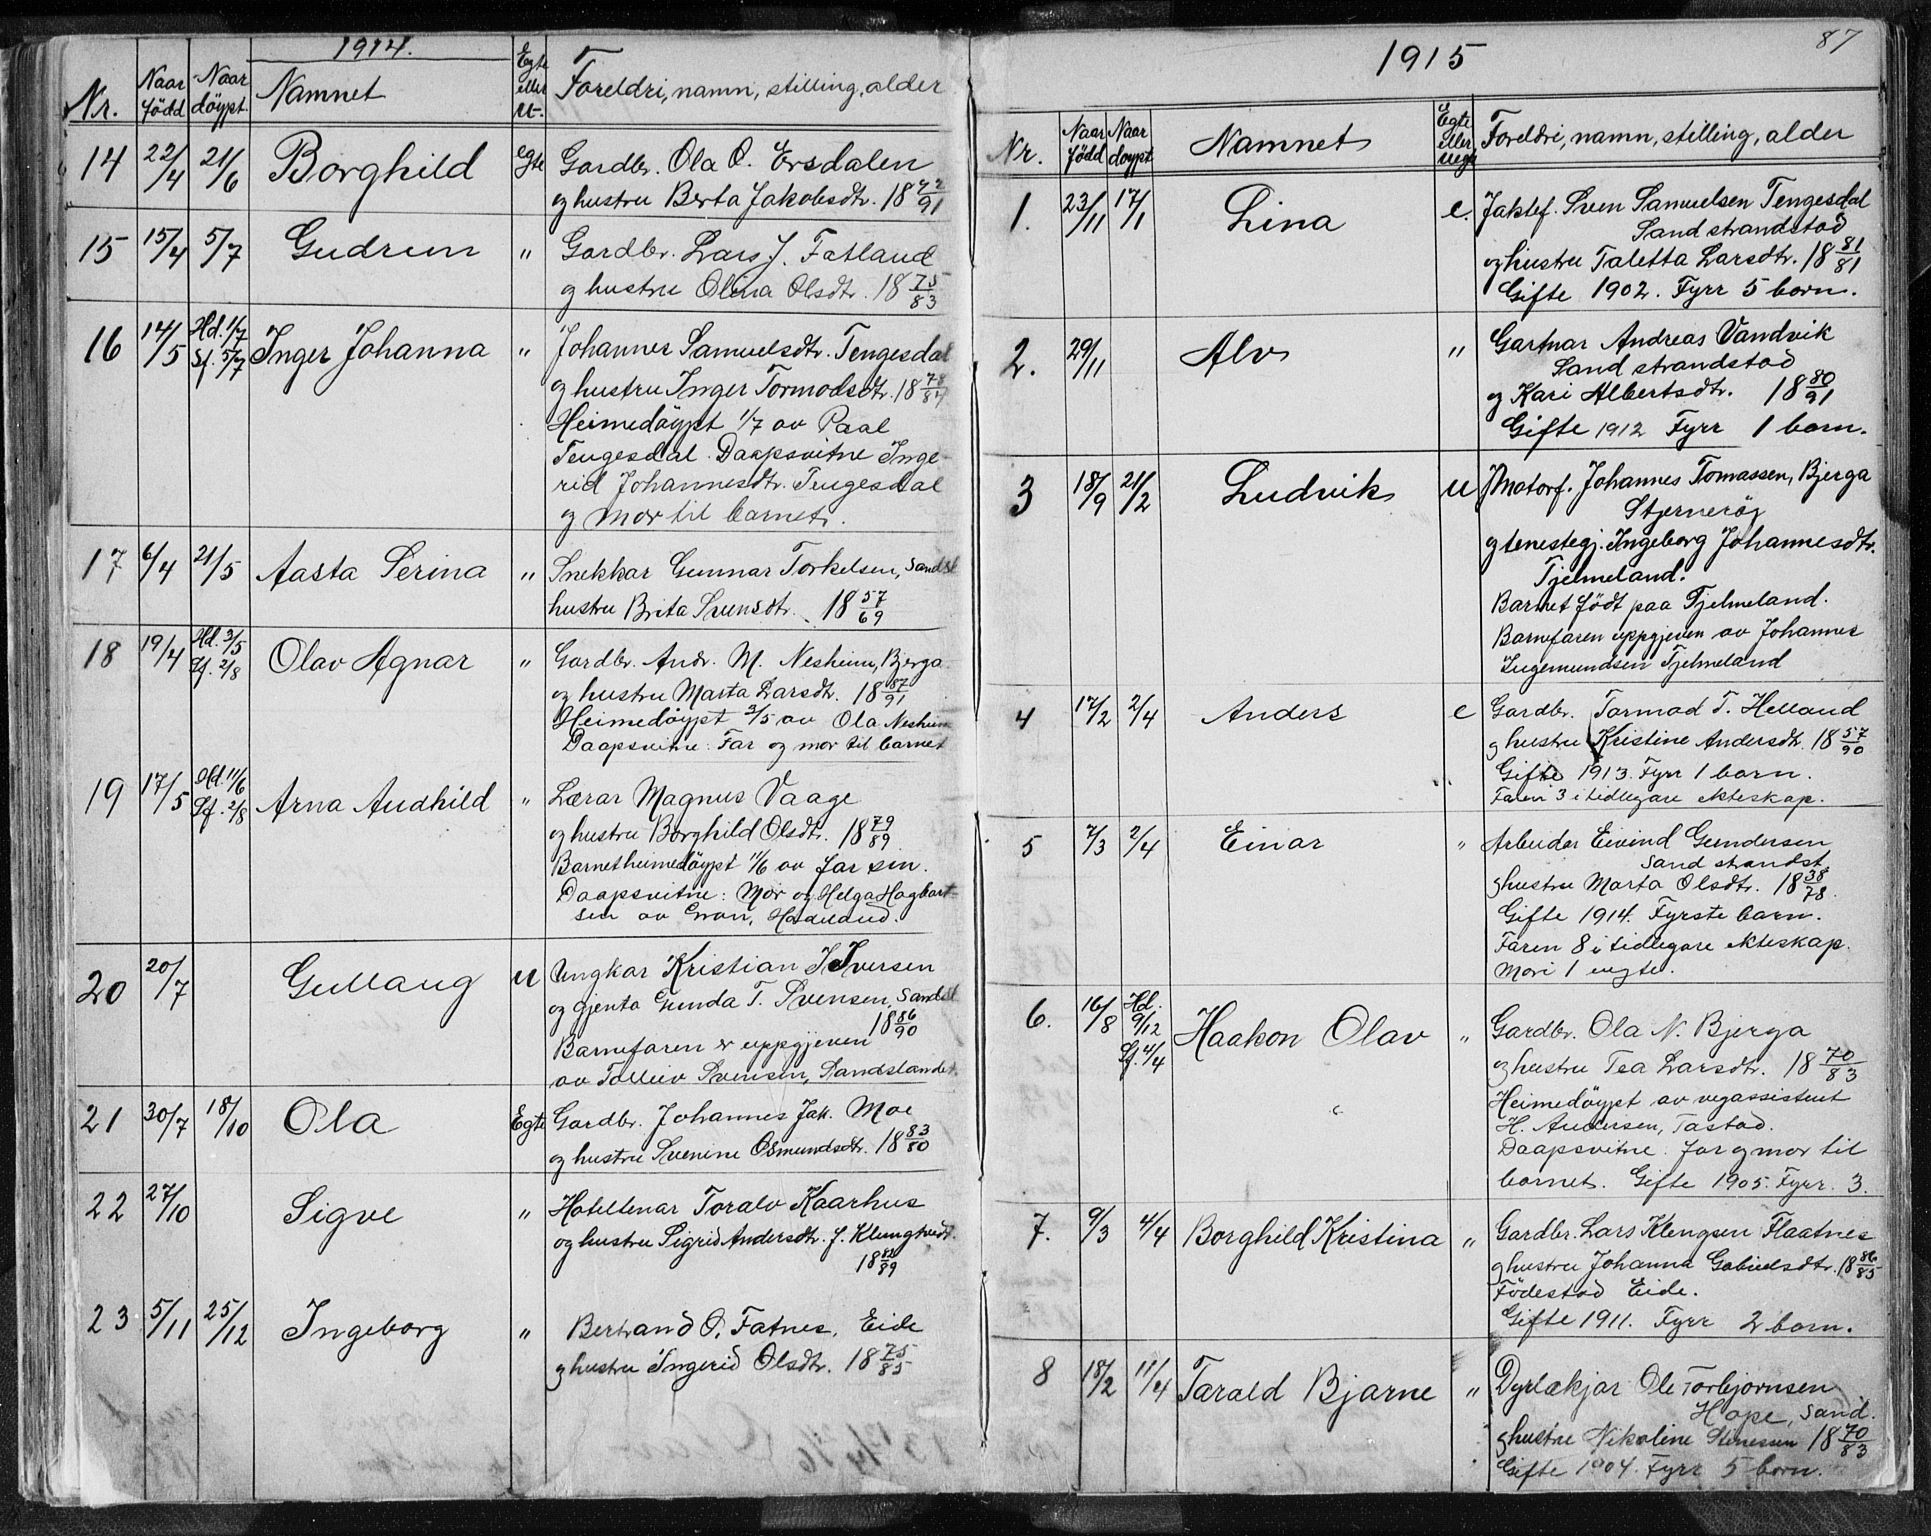 1914.
Nr. Naar född Naar döypt Namnet Egte eller U. Foreldri, namn, stilling, alder
14 22/4 21/6 Borghild egte Gardbr. Ola O. Ersdalen
og hustru Berta Jakobsdtr. 18 /91
15 15/4 5/7 Gudrun " Gardbr. Lars J. Fatland
og hustru Olina Olsdtr. 18 75/83
16 14/5 Hd. 1/7 Sf. 5/7 Inger Johanna " Johannes Samuelsdtr. Tengesdal
og hustru Inger Tormodsdtr. 18 78/84
Heimedöypt 1/7 av Paal
Tengesdal. Daapsvitne Inge-
rid Johannesdtr. Tengesdal
og mor til barnet.
17 6/4 21/5 Aasta Serina " Snekkar Gunnar Torkelsen, Sandsl
hustru Brita Svensdtr. 18 57/69
18 19/4 Hd. 3/5 Sf. 2/8 Olav Agnar " Gardbr. Andr. M. Nesheim, Bjerga
og hustru Marta Larsdtr. 18 87/91
Heimedöypt 3/5 av Ola Nesheim
Daapsvitne: Far og mor til barnet
19 17/5 Hd. 11/6 Sf. 2/8 Arna Audhild " Lærar Magnus Vaage
og hustru Borghild Olsdtr. 18 79/89
Barnet heimedöypt 11/6 av far sin.
Daapsvitne: Mor og Helga Hagbart-
sen av Gran, Hadeland.
20 20/7 Gullaug U Ungkar Kristian I Iversen
og gjenta Gunda T. Svensen, Sandsl
18 86/90
Barnefaren er uppgjeven
av Tolleiv Svensen, Sandslandet
21 30/7 18/10 Ola Egte Gardbr. Johannes Jak. Moe
og hustru Svenine Osmundsdtr. 18 83/80
22 27/10 Sigve " Hotelleiar Toralv Kaarhus
og hustru Sigrid Andersdtr. f. Klungtvedt.
18 /89
23 5/11 25/12 Ingeborg " Bertrand O. Fatnes, Eide
og hustru Ingerid Olsdtr. 18 75/85
87
1915
Nr. Naar född Naar döypt Namnet Egte eller uegt Foreldri, namn, stilling, alder
1. 23/11 17/1 Lina e. Jaktef. Sven Samuelsen Tengesdal
Sand strandstad
og hustru Taletta Larsdtr. 18 81/81
Gifte 1902. Fyrr 5 born.
2. 29/11 Alv " Gartnar Andreas Vandvik
Sand strandstad
og Kari Albertsdtr. 18 80/91
Gifte 1912 Fyrr 1 born.
3 18/9 21/2 Ludvik U Motorf. Johannes Tomassen, Bjerga
Stjerneröy
og tenestegj. Ingeborg Johannesdtr.
Tjelmeland.
Barnet födt paa Tjelmeland.
Barnefaren uppgjeven av Johannes
Ingemundsen Tjelmeland
4 17/2 2/4 Anders e Gardbr. Tormod T. Helland
og hustru Kristine Andersdtr. 18 57/90
Gifte 1913. Fyrr 1 barn.
Faren 3 i tidlegare ekteskap.
5 7/3 2/4 Einar " Arbeidar Eivind Gundersen
Sand strandst
og hustru Marta Olsdtr. 18 38/78.
Gifte 1914. Fyrste barn.
Faren 8 i tidlegare ekteskap.
Mori 1 uegte.
6. 16/8 Hd. 9/12 Sf. 4/4 Haakon Olav " Gardbr. Ola N. Bjerga
og hustru Tea Larsdtr. 18 70/83
Heimedöypt av vegassistent
H. Andersen, Tastad.
Daapsvitne: far og mor til
barnet. Gifte 1905. Fyrr 3.
7. 9/3 4/4 Borghild Kristina " Gardbr. Lars Klengsen Flaatnes
og hustru Johanna Gabrielsdtr. 18 86/85
Födestad Eide.
Gifte 1911. Fyrr 2 born.
8 18/2 11/4 Tarald Bjarne " Dyrlækjar Ole Torbjornsen
Hope, Sand.
og hustru Nikoline Stenessen 18 70/83
Gifte 1904. Fyrr 5 born.